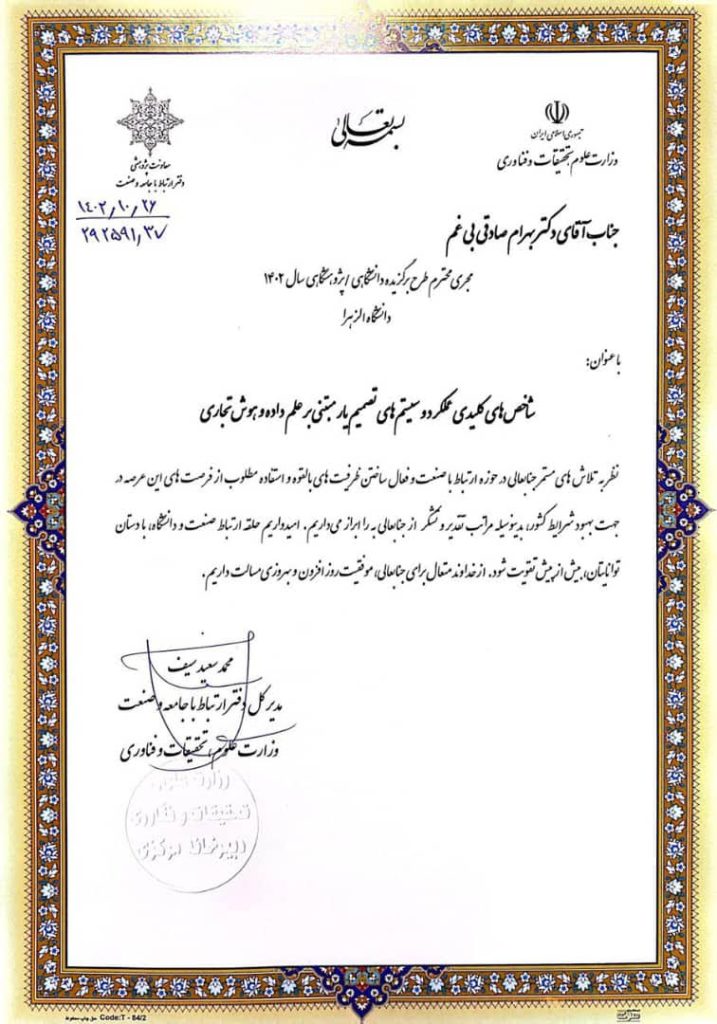 بسمه تعالی
جمهوری اسلامی ایران
وزارت علوم، تحقیقات و فناوری
معاونت پژوهشی
دفتر ارتباط با جامعه و صنعت
۱۴۰۲/۱۰/۲۶
۲۹۲۵۹۱/۳۷
جناب آقای دکتر بهرام صادقی بی غم
مجری محترم طرح برگزیده دانشگاهی / پژوهشگاهی سال ۱۴۰۲
دانشگاه الزهرا
با عنوان:
شاخص های کلیدی عملکرد و سیستم های تصمیم یار مبتنی بر علم داده و هوش تجاری
نظر به تلاش های مستمر جنابعالی در حوزه ارتباط با صنعت و فعال ساختن ظرفیت های بالقوه و استفاده مطلوب از فرصت های این عرصه در
جهت بهبود شرایط کشور، بدینوسیله مراتب تقدیر و تشکر از جنابعالی به را ابراز می‌داریم. امیدواریم حلقه ارتباط صنعت و دانشگاه، با دستان
توانایتان، بیش از پیش تقویت شود. از خداوند متعال برای جنابعالی، موفقیت روز افزون و بهروزی مسالت داریم.
محمد سعید سیف
مدیر کل دفتر ارتباط با جامعه و صنعت
وزارت علوم، تحقیقات و فناوری
وزارت علوم
تحقیقات و فناوری
دبیرخانه مرکزی
Code:T - 84/2